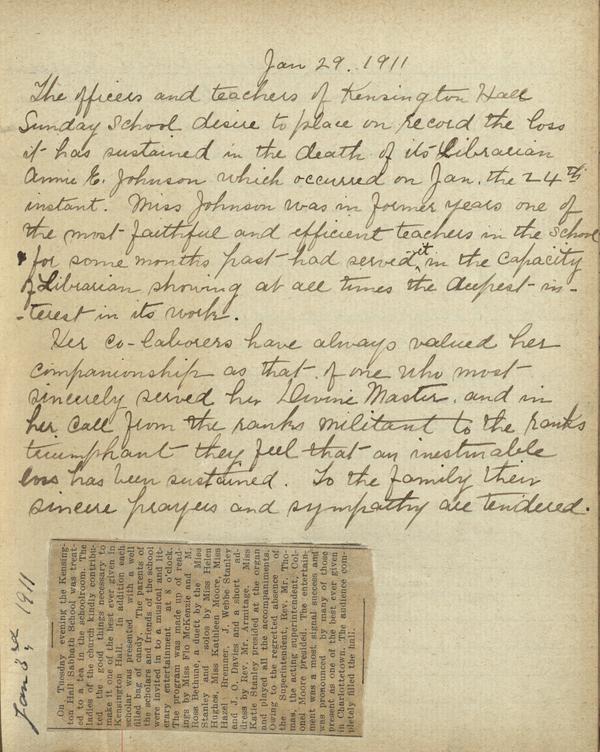 Jan 29. 1911
The officers and teachers of Kensington Hall
Sunday School desire to place on record the loss
it has sustained in the death of its Librarian
Annie E. Johnson which occurred on Jan. the 24th
instant. Miss Johnson was in former years one of
the most faithful and efficient teachers in the School
for some months past had served it in the capacity
of Librarian showing at all times the deepest in-
-terest in its work.
Her co-laborers have always valued her
companionship as that of one who most
sincerely served her Divine Master, and in
her call from the ranks militant to the ranks
triumphant they feel that an inestimable
loss has been sustained. To the family their
sincere prayers and sympathy are tendered.
Jan 3rd, 1911
On Tuesday evening the Kensing-
ton Hall Sabbath School was treat-
ed to a tea in the schoolroom. The
ladies of the church kindly contribu-
ted the good things necessary to
make it one of the best ever given in
Kensington Hall. In addition each
scholar was presented with a well
filled bag of candy. The parents of
the scholars and friends of the school
were invited to a musical and lit-
erary entertainment at 8 o'clock.
The program was made up of read-
ings by Miss Flo McKenzie and M.
Ross Bethune, a duett by the Miss
Stanley and solos by Miss Helen
Hughes, Miss Kathleen Moore, Miss
Hazel Brenner, J. Webbe Stanley
and J. O. Davies and a short ad-
dress by Rev. Mr. Armitage. Miss
Katie Stanley presided at the organ
and played all the accompaniments.
Owing to the regretted absence of
the Superintendent, Rev. Mr. Tho-
mas, the acting superintendent, Col-
onel Moore presided. The entertain-
ment was a most signal success and
was pronounced by many of those
present as one of the best ever given
in Charlottetown. The audience com-
pletely filled the hall.